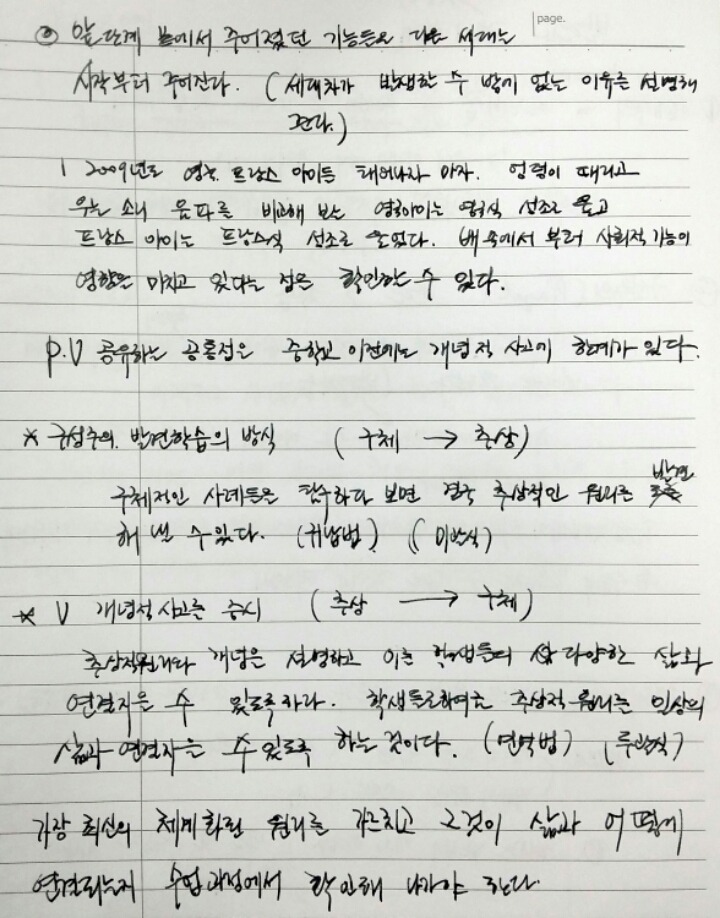 page.
② 앞 단계 에서 주어졌던 기능들은 다음 세대는
시작부터 주어진다. (세대차가 발생할 수 밖에 없는 이유를 설명해
준다.)
2009년도 영국, 프랑스 아이들 태어나자 마자. 엉덩이 때리고
우는 소리 음파를 비교해 보는 영국아이는 영국식 성조로 울고
프랑스 아이는 프랑스식 성조로 울었다. 배 속에서 부터 사회적 기능이
영향을 미치고 있다는 점을 확인할 수 있다.
P.V 공유하는 공통점은 중학교 이전에는 개념적 사고에 한계가 있다.
* 구성주의. 발견학습의 방식 (구체 → 추상)
구체적인 사례들을 탐구하다 보면 결국 추상적인 원리를 발견
해 낼 수 있다. (귀납법) (미박식)
* V 개념적 사고를 중시 (추상 → 구체)
추상적원리나 개념을 설명하고 이를 학생들의 다양한 삶과
연결지을 수 있도록하라. 학생들로하여금 추상적 원리를 일상의
삶과 연결지을 수 있도록 하는 것이다. (연역법) (루박식)
가장 최신의 체계화된 원리를 가르치고 그것이 삶과 어떻게
연결되는지 수업과정에서 확인해 나가야 한다.